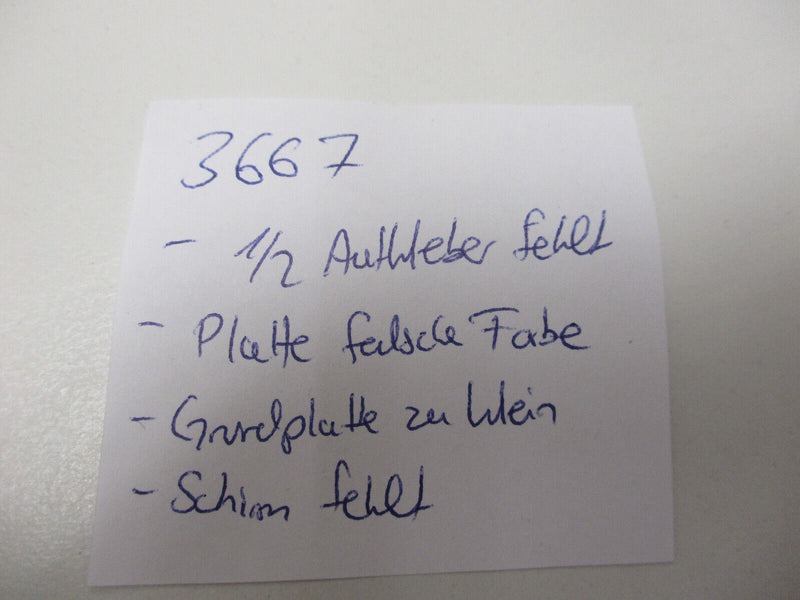 3667
- 1/2 Aufkleber fehlt
- Platte falsche Fabe
- Grundplatte zu klein
- Schirm fehlt